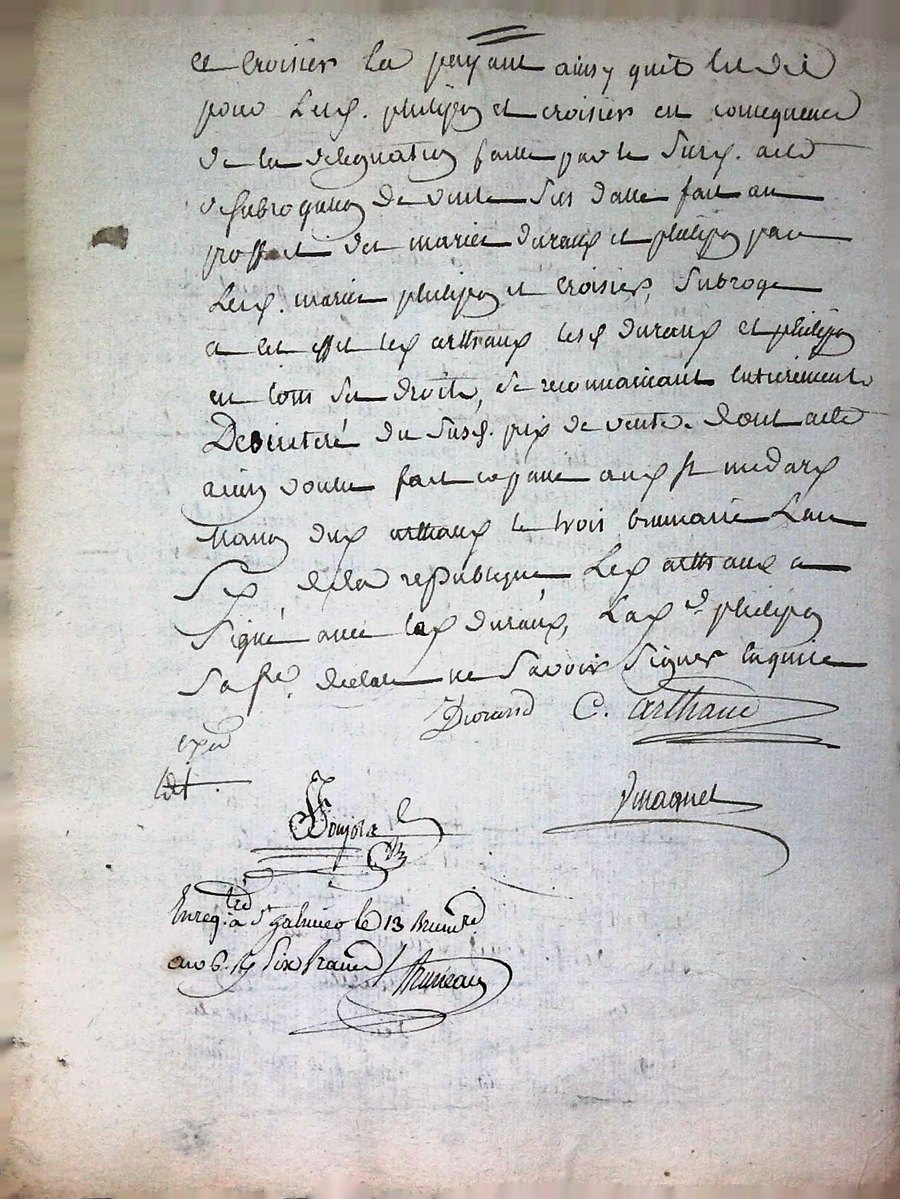 et croisier les payant ainsy quit est dit
pour Les d. philipon et croisier en consequence
de la delegation faitte par le Susd. acte
de Subrogation de vente Sus datte fait au
proffit des mariés durand et philipon par
Les d. mariés philipon et croisier, Subroge
a cet effet led arthaud lesd durand et philipon
en tous ses droits, se reconnaissant entierement
Desinteré du Susd. prix de vente. dont acte
ainsy voulu fait et passé aud St medard
maison dud arthaud le trois brumaire Lan
Six de la republique Led arthaud a
Signé avec led durand, Lad. philipon
Sa fe. declare ne Savoir Signer enquise
Durand C. arthaud
expd
ymagnet
Enregtré à St galmier le 13 Brumre
an 6. R Six francs